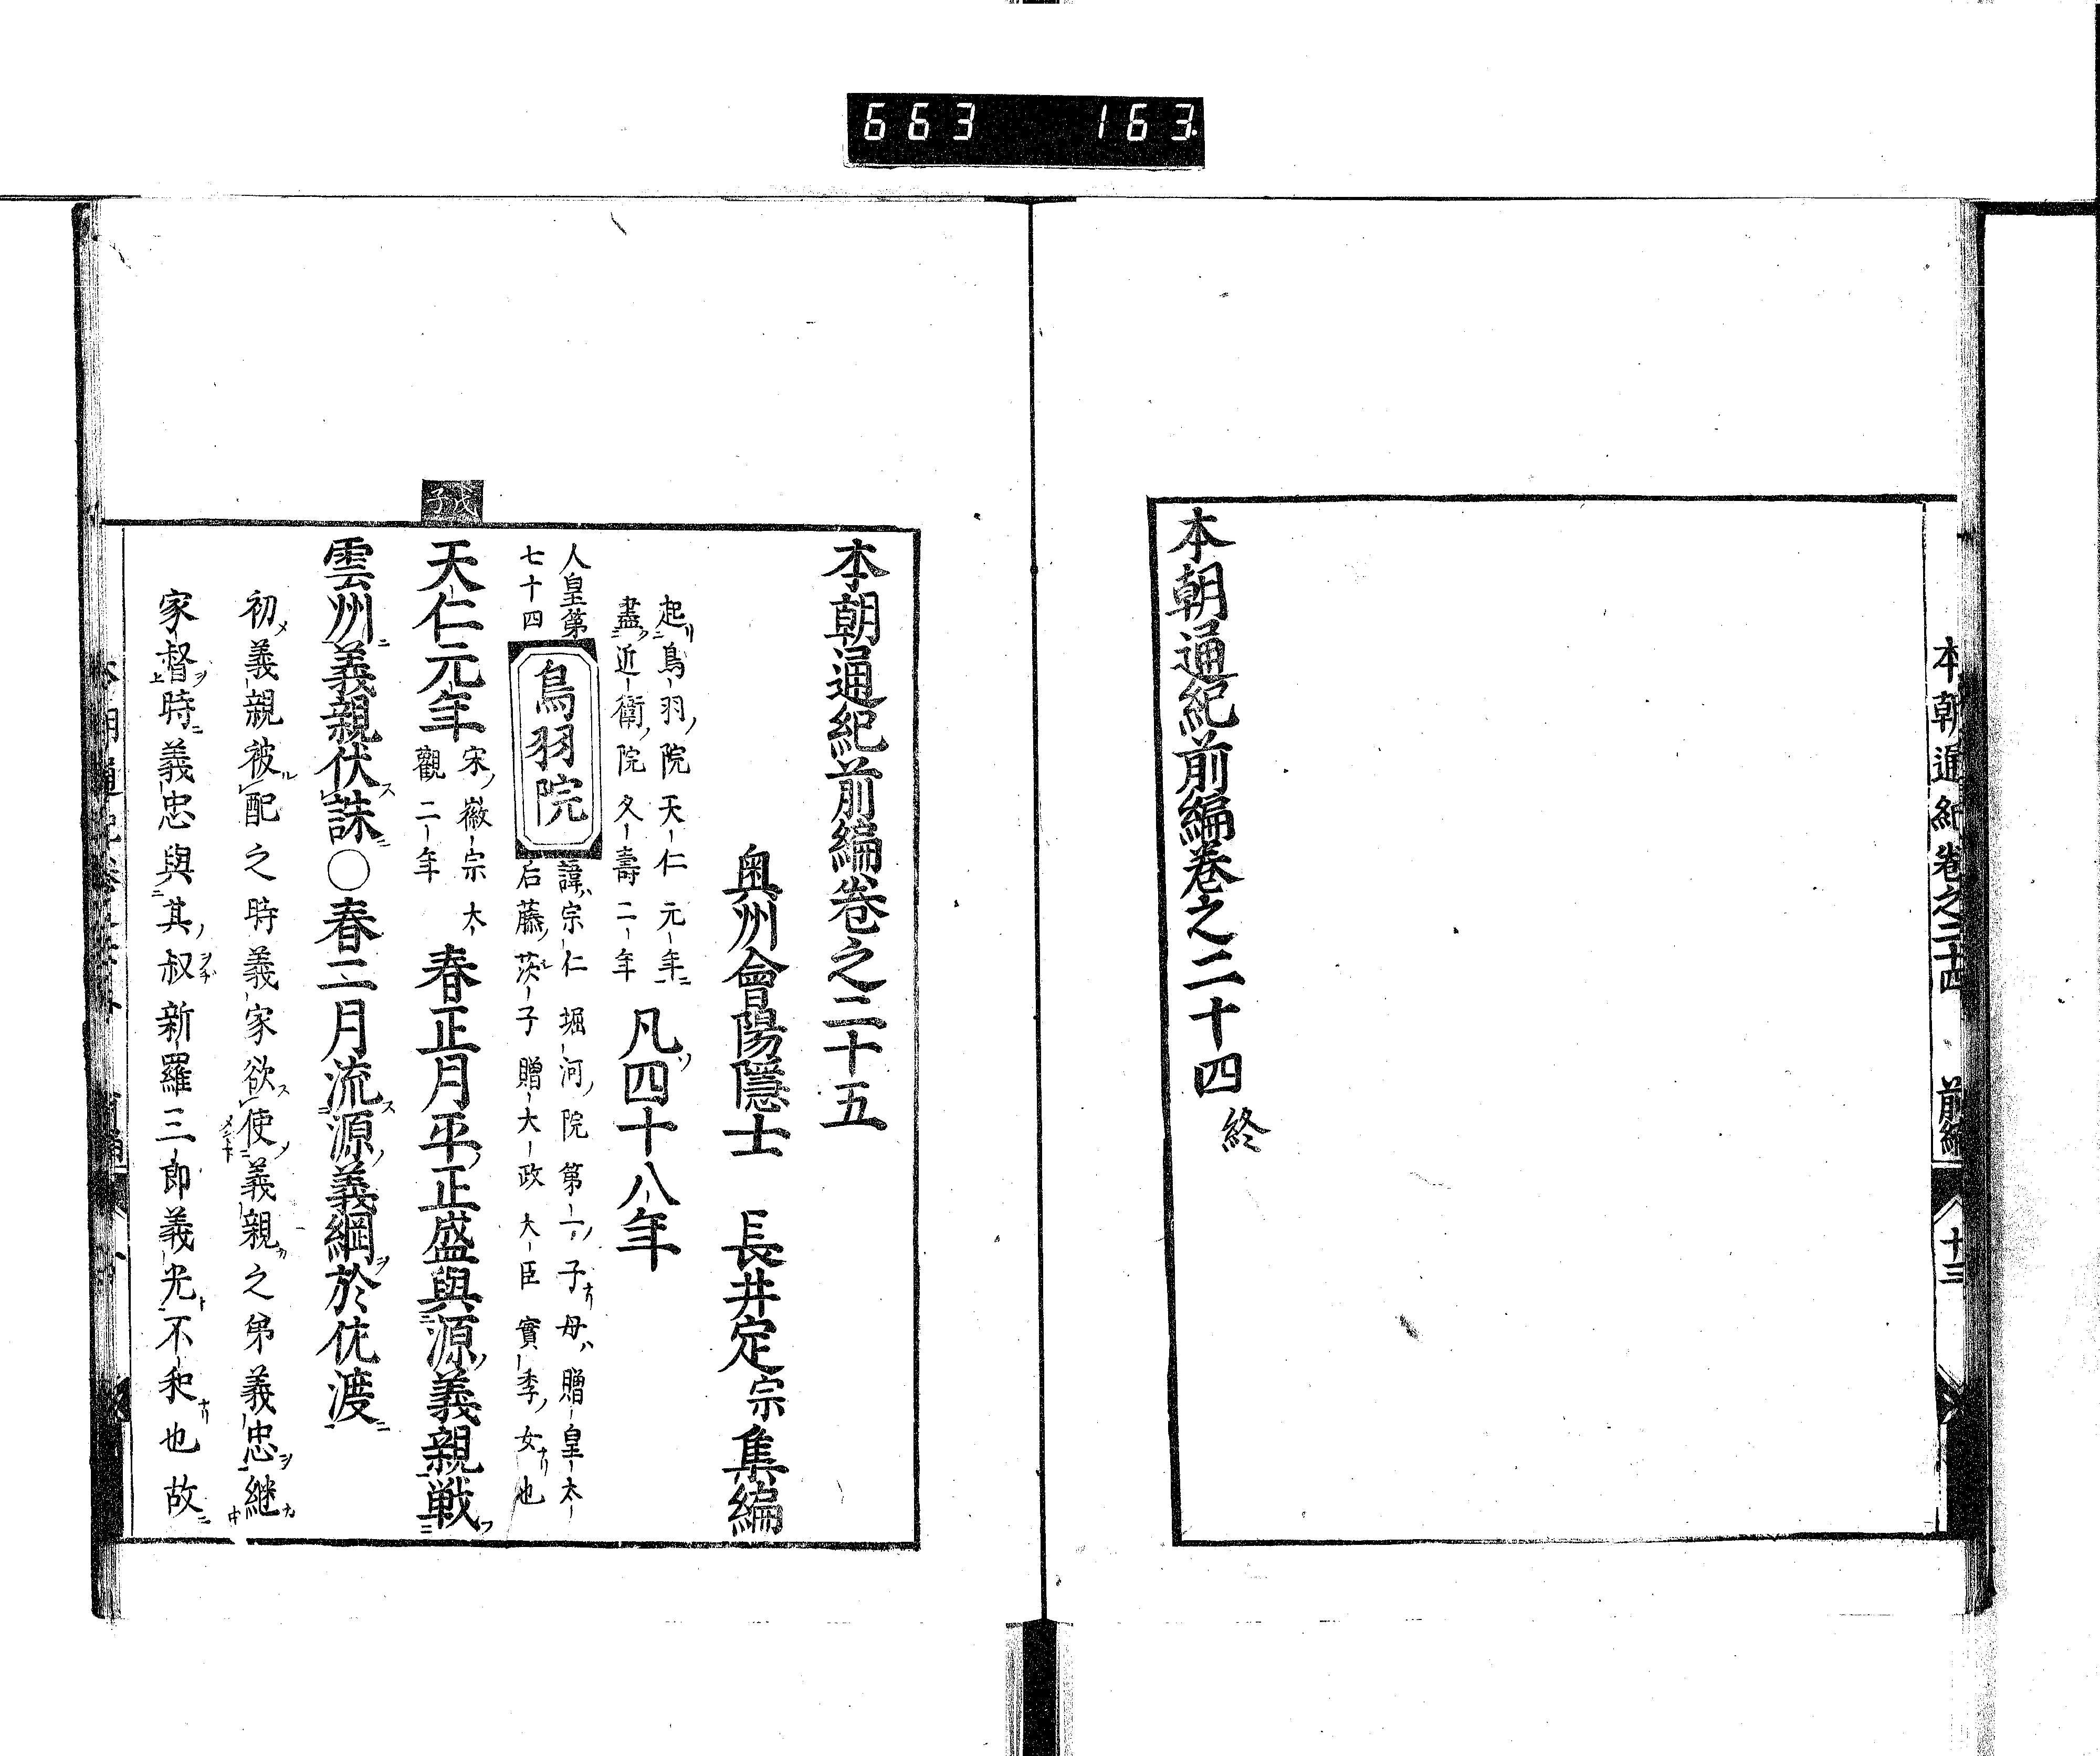 663 163
本朝通紀卷之二十四 前編 十三
本朝通紀前編卷之二十四 終
本朝通紀前編卷之二十五
奥州會陽隱士 長井定宗集編
起鳥羽院天仁元年
盡近衛院久壽二年
凡四十八年
人皇第
七十四
鳥羽院
諱宗仁堀河院第一子母贈皇太
后藤茨子贈大政大臣實季女也
戊子
天仁元年
宋徽宗大
觀二年
春正月平正盛與源義親戦
雲州義親伏誅〇春二月流源義綱於佐渡
初義親被配之時義家欲使義親之弟義忠継
家督時義忠與其叔新羅三郎義光不和也故